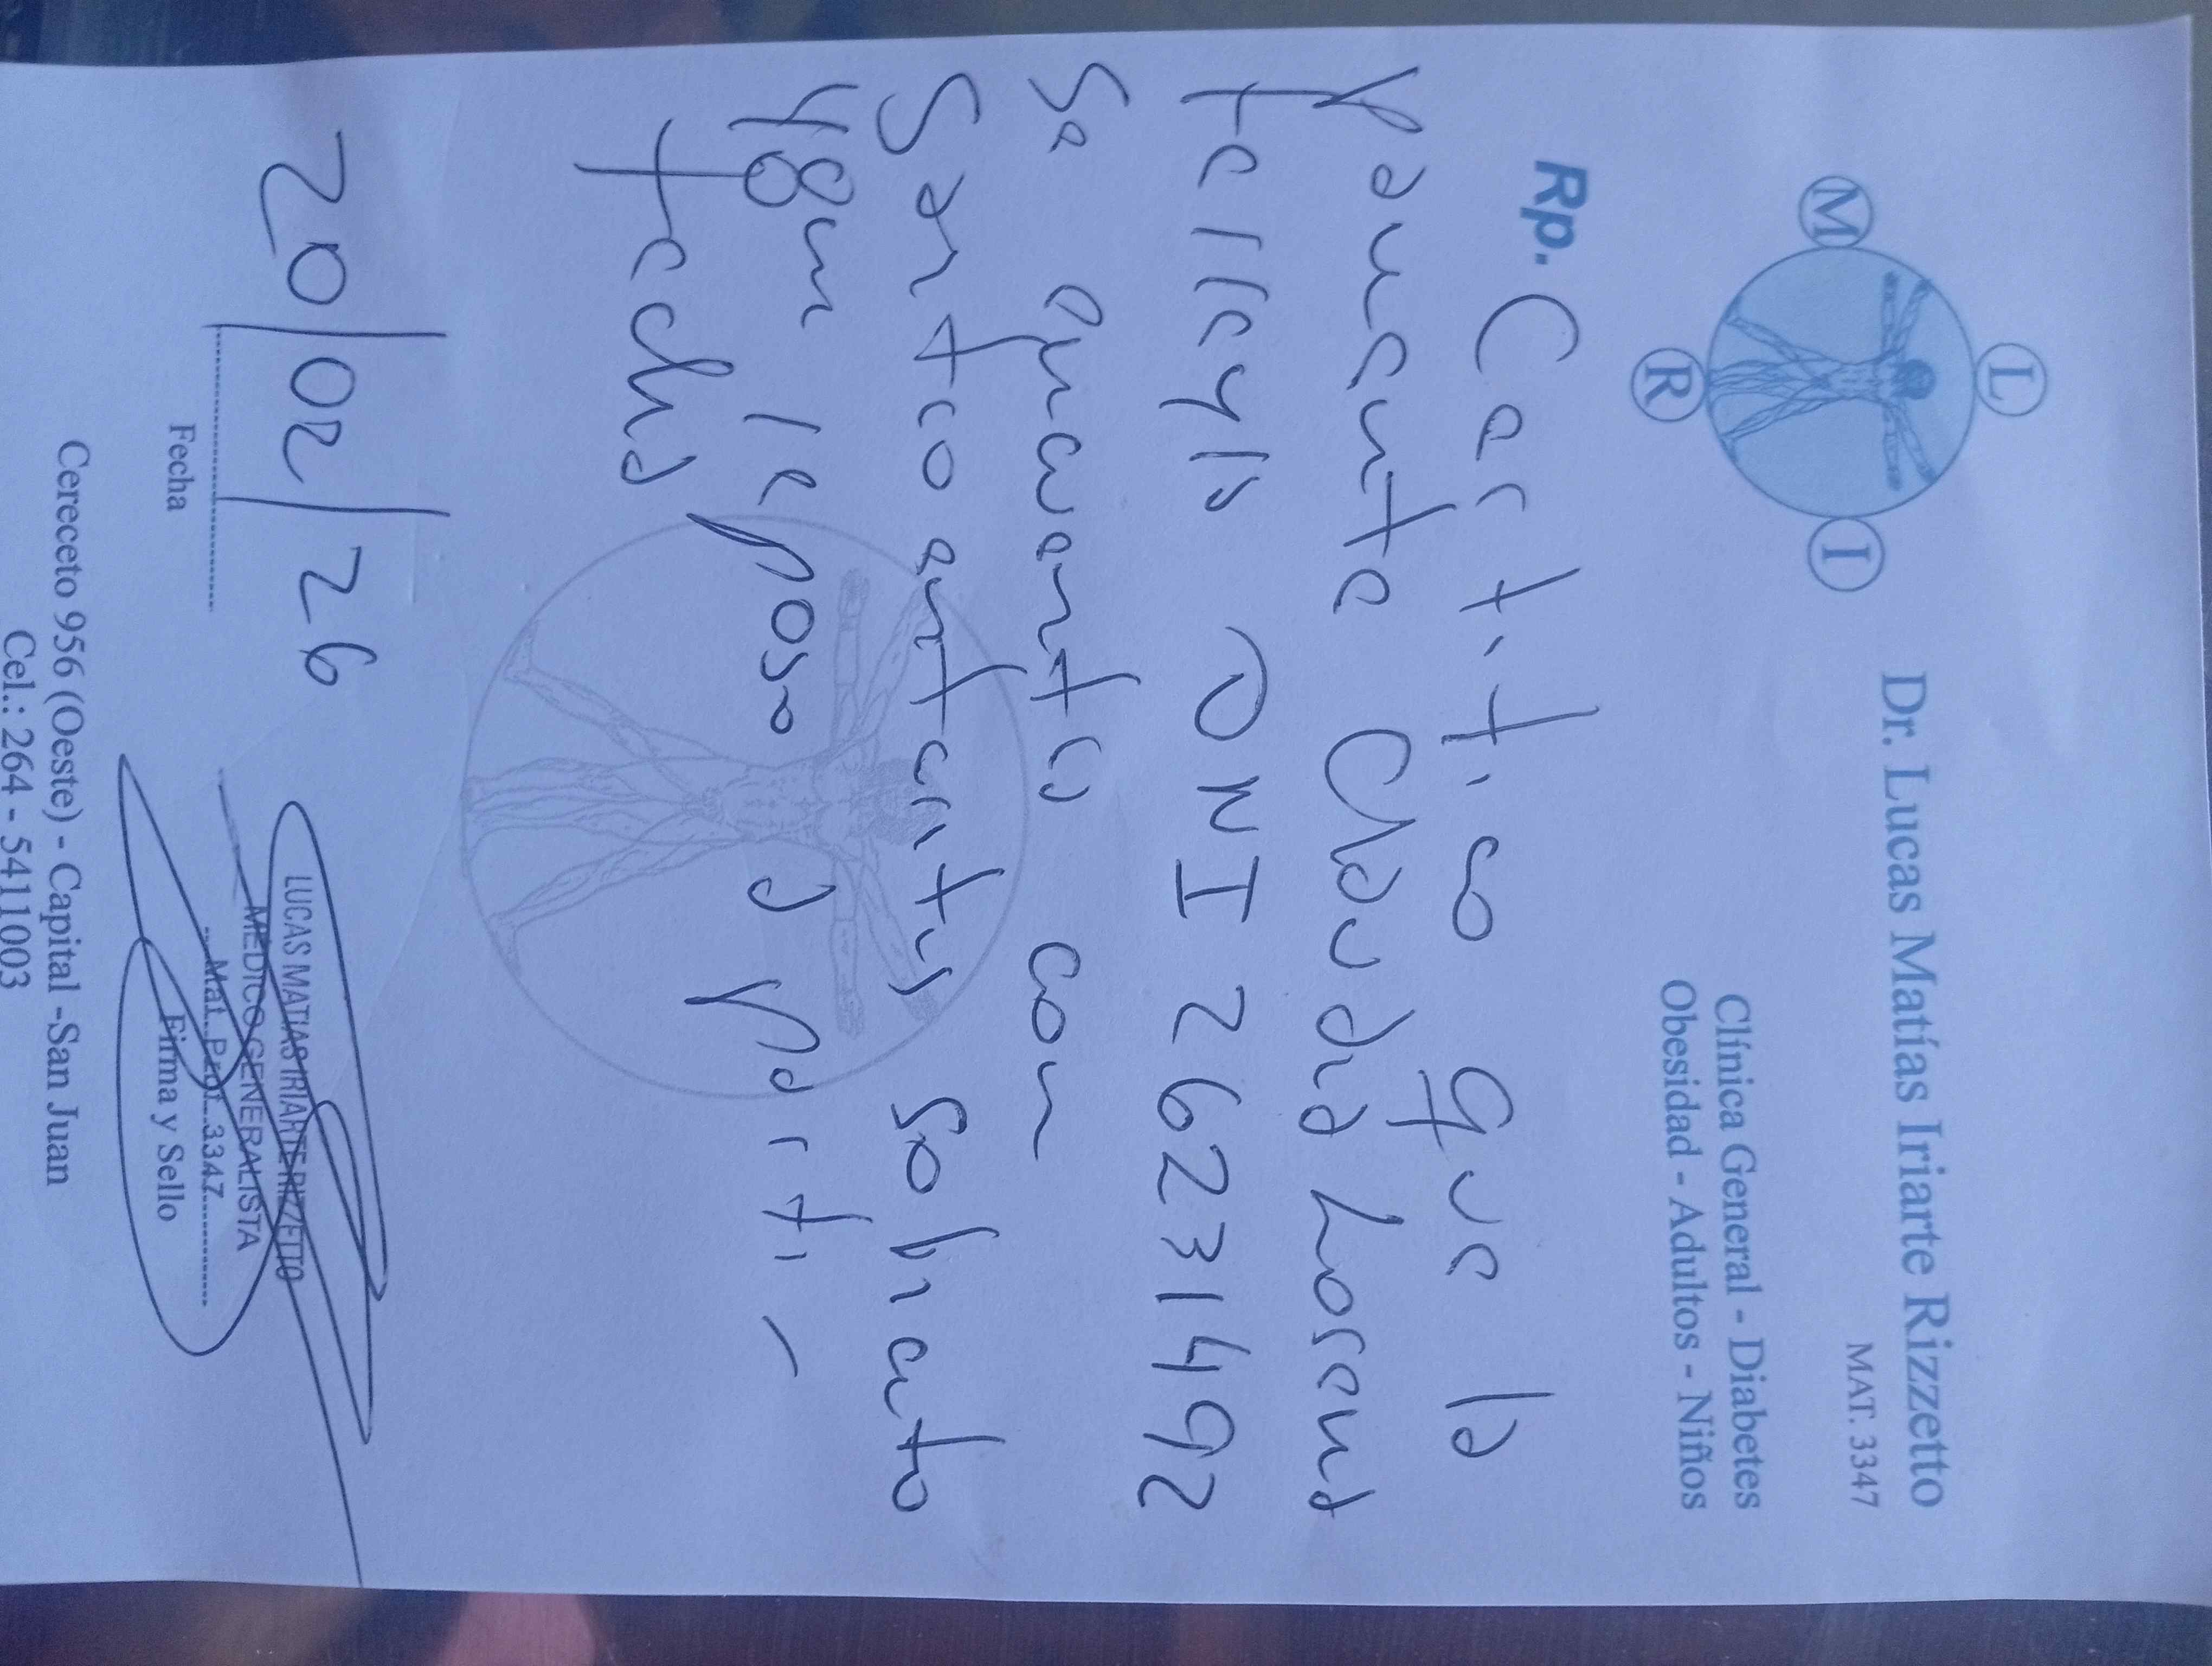 L
M
I
R
Dr. Lucas Matías Iriarte Rizzetto
MAT. 3347
Clínica General - Diabetes
Obesidad - Adultos - Niños
Rp. Certifico que la
paciente Claudia Lorena
DNI 26231492
Se encuentra con
solicito
reposo a parti-
fecha
20/02/26
Fecha
LUCAS MATIAS IRIARTE RIZZETTO
MEDICO GENERALISTA
Mat. Prof. 3347
Firma y Sello
Cereceto 956 (Oeste) - Capital -San Juan
Cel.: 264 - 5411003